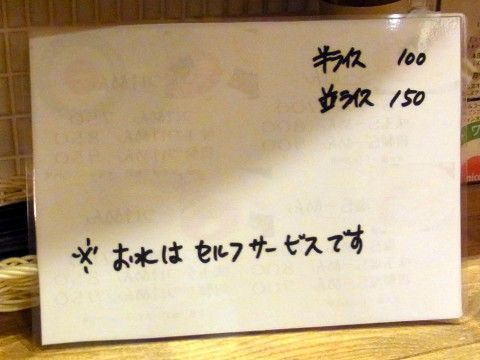 半ライス 100
並ライス 150
※ お水は セルフサービスです